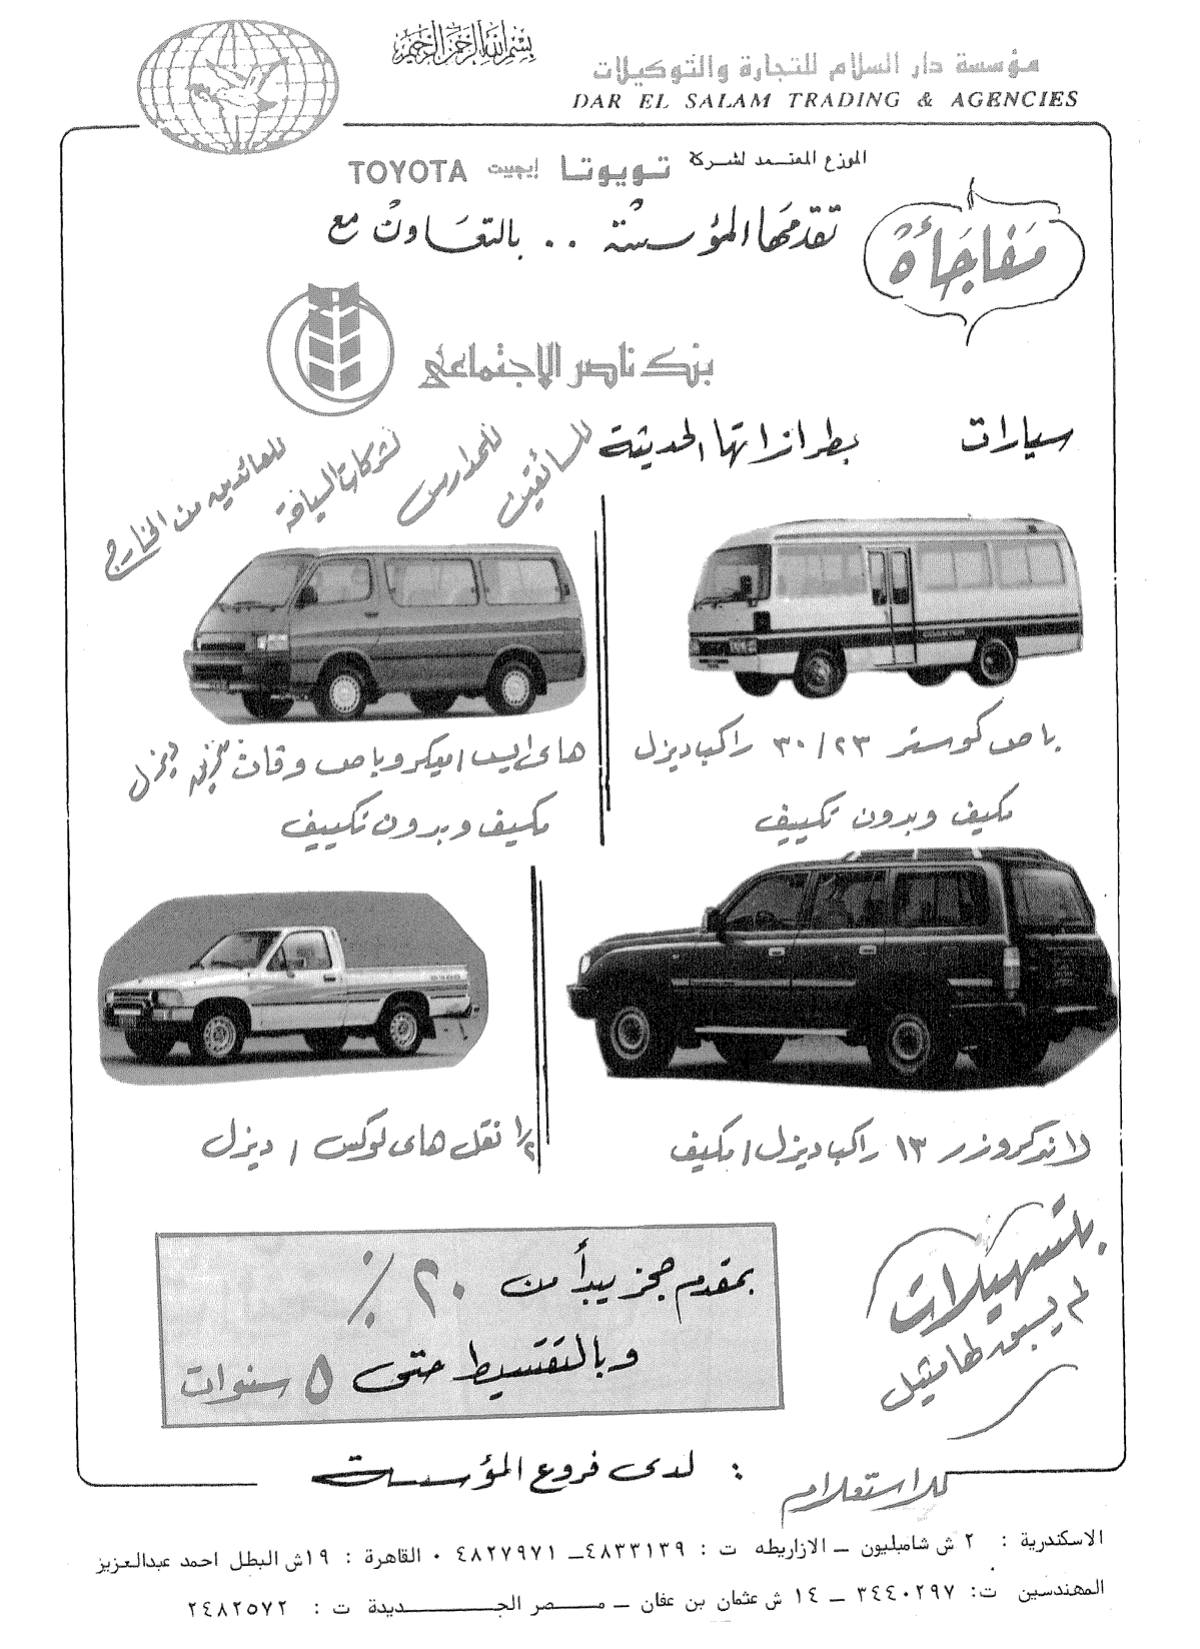 بسم الله الرحمن الرحيم
مؤسسة دار السلام للتجارة والتوكيلات
DAR EL SALAM TRADING & AGENCIES
الموزع المعتمد لشركة تويوتا إيجيبت TOYOTA
مفاجأة
تقدمها المؤسسة .. بالتعاون مع
بنك ناصر الاجتماعى
سيارات بطرازاتها الحديثة
للسائقين
للمدارس
لشركات السياحة
للعائدين من الخارج
باص كوستر ٣٠/٢٣ راكب ديزل
مكيف وبدون تكييف
هاى ايس / ميكروباص وفان بنزين ديزل
مكيف وبدون تكييف
لاندكروزر ١٣ راكب ديزل / مكيف
١/٢ نقل هاى لوكس / ديزل
بتسهيلات
لم يسبق لها مثيل
بمقدم حجز يبدأ من ٢٠ ٪
وبالتقسيط حتى ٥ سنوات
للاستعلام : لدى فروع المؤسسة
الاسكندرية : ٢ ش شامبليون ــ الازاريطه ت : ٤٨٣٣١٣٩ــ ٤٨٢٧٩٧١ ٠ القاهرة : ١٩ش البطل احمد عبدالعزيز
المهندسين ت: ٣٤٤٠٢٩٧ ــ ١٤ ش عثمان بن عفان ــ مصر الجديدة ت : ٢٤٨٢٥٧٢